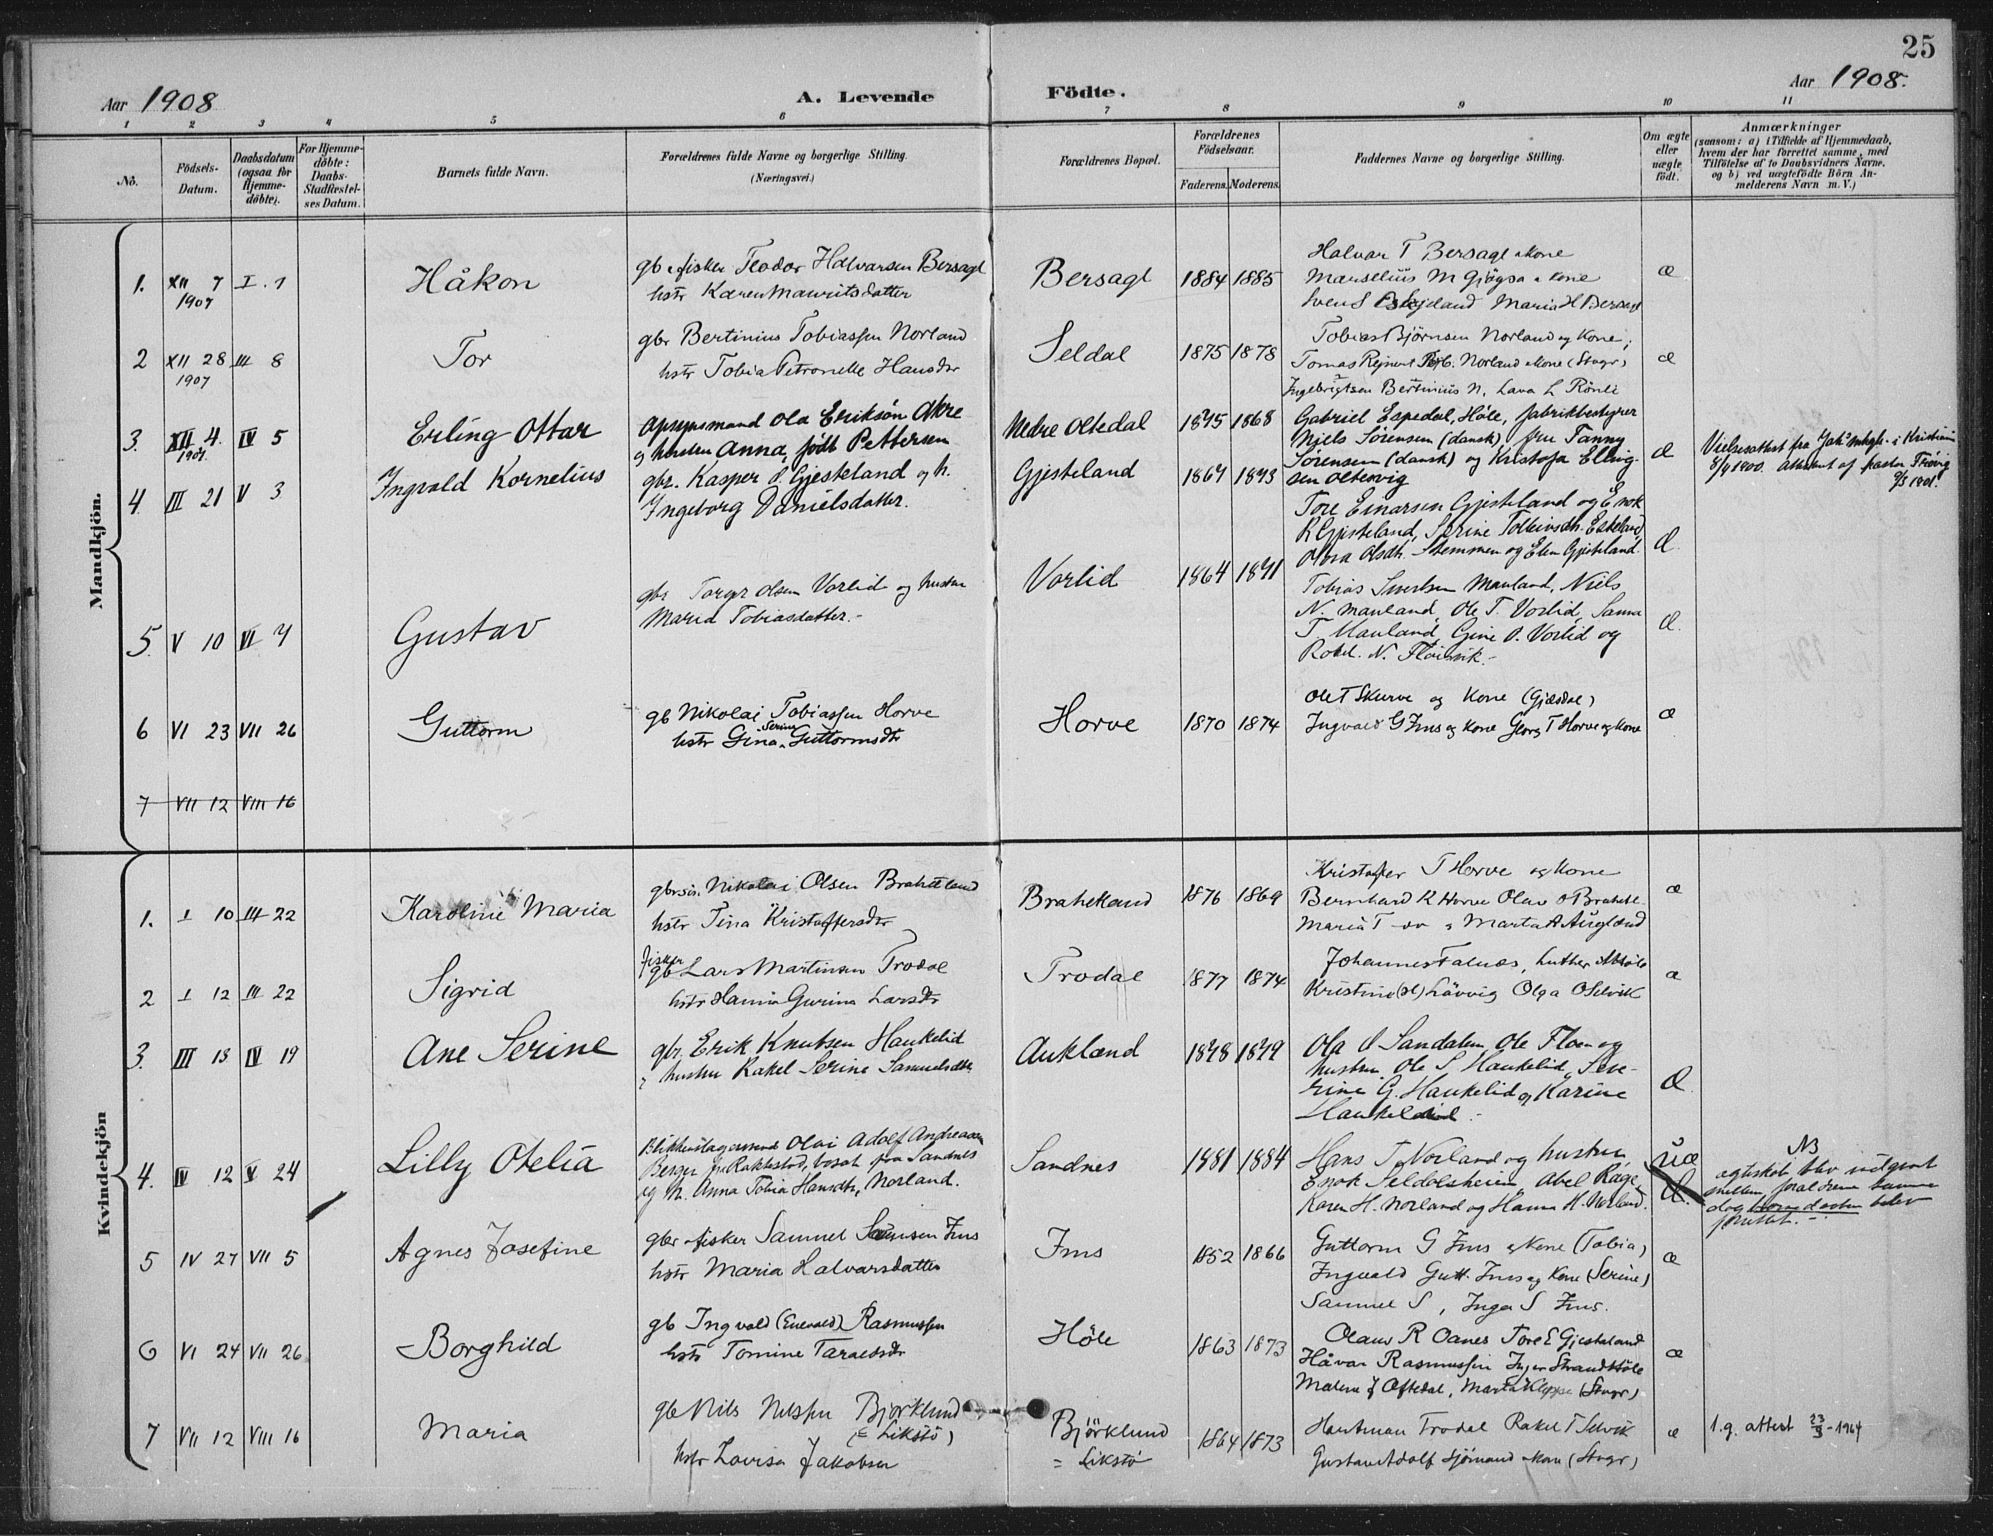 25
Aar 1908
A. Levende Födte.
Aar 1908.
1 2 3 4 5 6 7 8 9 10 11
No.
Födsels-Datum.
Daabsdatum (ogsaa for Hjemme-döbte).
For Hjemme-döbte: Daabs-Stadfæstel-ses Datum.
Barnets fulde Navn.
Forældrenes fulde Navne og borgerlige Stilling.
(Næringsvei.)
Forældrenes Bopæl.
Forældrenes Födselsaar.
Faderens. Moderens.
Faddernes Navne og borgerlige Stilling.
Om ægte eller uægte födt.
Anmærkninger
(saasom: a) i Tilfælde af Hjemmedaab,
hvem der har forrettet samme, med
Tilföielse af to Daabsvidners Navne,
og b) ved uægtefödte Börn An-
melderens Navn m. V.)
Mandkjön.
1. XII 7 1907 I. 1 Håkon
gbr fisker Teodor Halvarsen Bersagl
hstr Karen Mauritsdatter
Bersagl 1884 1885
Halvar T Bersagl kone
Marselius M Gjögsa kone
Sven S Eskjeland Maria H Bersagl
æ
2 XII 28 1907 III 8 Tor
gbr Bertinius Tobiassen Norland
hstr Tobia Petronelle Hansdtr
Seldal 1875 1878
Tobias Bjørnsen Norland og Kone,
Tomas Rejnert Norland kone (Stvgr)
Ingebrigtsen Bertinius N, Lava L Rönli
æ
3. XII 4. 1907. IV 5 Erling Ottar
opsynsmand Ola Eriksön Akre
og hustru Anna, født Pettersen
Nedre Oltedal 1875 1868
Gabriel Espedal, Høle, fabrikbestyrer
Niels Sørensen (dansk), fru Fanny
Sørensen (dansk) og Kristofa Elling-
sen Oltesvig
Æ
Vielsesattest fra i Kristiania
4 III 21 V 3 Ingvald Kornelius
gbr. Kasper O. Gjesteland og h.
Ingeborg Danielsdatter.
Gjesteland 1867 1873
Tore Einarsen Gjesteland og Enok
R Gjesteland, Serine Tolleivsdtr. Eskeland,
Olava Olsdtr. Stemmen og Elen Gjesteland.
Æ.
5. V 10 VI 7 Gustav
gbr Torger Olsen Vorlid og hustru
Maria Tobiasdatter.-
Vorlid 1864 1871
Tobias Mauland, Niels
N. Mauland, Ole T. Vorlid, Sanna
T Mauland, Gine O. Vorlid og
Rakel. N. Floisvik.-
Æ.
6 VI 23 VII 26 Guttorm
gb Nikolai Tobiassen Horve
hstr Gina Serine Guttormsdtr
Horve 1870 1874
Ole T Skurve og Kone (Gjesdal)
Ingvald G Ims og kone Georg T Horve og kone
æ
7 VII 12 VIII 16
Kvindekjön
1. I 10 III 22 Karoline Maria
Nikolai Olsen Brahekland
hstr Tina Kristoffersdtr
Brahekland 1876 1869
Kristoffer T Horve og Kone
Bernhard R Horve Olav O Brahekl-
Maria T Marta A Auglænd
æ
2 I 12 III 22 Sigrid
fisker
gb Lars Martinsen Trodal
hstr Hanna Gurina Larsdtr
Trodal 1877 1874
Johannes Falnæs, Luther
Kristine Lövvig Olga O Selvik
æ
3. III 13 IV 19 Ane Serine
gbr. Erik Knutsen Haukelid
hustru Rakel Serine Samuelsdtr
Aukland 1878 1879
Ola O Sandalen Ole Floen og
hustru. Ole S Haukelid, Seve-
rine G. Haukelid og Karine
Haukelid.-
Æ
4. IV 12 V 24 Lilly Otelia
Blikkenslagersvend Olai Adolf Andreassen
Berger fra Rakkestad, bosat paa Sandnes
og h. Anna Tobia Hansdtr, Norland.
Sandnes 1881 1884
Hans T Norland og hustru
Enok Seldalsheien Abel Rage,
Karen H. Norland og Hanna H. Norland.
uæ
Æ.
NB
ægteskab blev indgaat
mellem forældrene samme
dag barnedaaben blev
forrettet.-
5 IV 27 VII 5 Agnes Josefine
gbr fisker Samuel Samsen Ims
hstr Maria Halvarsdatter
Ims 1852 1866
Guttorm G Ims Kone (Tobia)
Ingvald Gutt. Ims og Kone (Serine)
Samuel S, Inga S Ims.
æ
6 VI 24 VII 26 Borghild
gb Ingvald (Enevald) Rasmussen
hstr Tomine Taraldsdtr
Höle 1863 1873
Olaus R Oanes Tore E Gjesteland
Håvar Rasmussen Inger Strandsöle
Malena J Oftedal, Marta Kleppe (Stvgr)
æ
7 VII 12 VIII 16 Maria
gb Nils Nilssen Björklund
(= Likstö)
hstr Lovisa Jakobsen
Björklund
= Likstö
1864 1873
Hartman Trodal Rakel T Selvik
Gustav Adolf sjömand kone (Stvgr)
æ
1.g. attest 23/3-1964